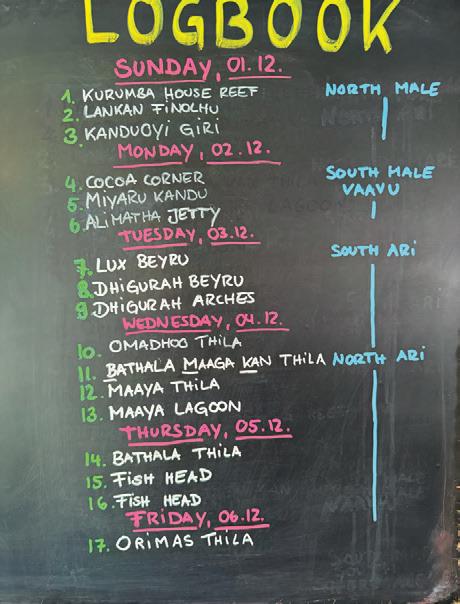 LOGBOOK
SUNDAY, 01.12.
1. KURUMBA HOUSE REEF
NORTH MALE
2. LANKAN FINOLHU
3. KANDUOYI GIRI
MONDAY, 02.12.
4. COCOA CORNER
SOUTH MALE
5. MIYARU KANDU
VAAVU
6. ALIMATHA JETTY
TUESDAY, 03.12.
SOUTH ARI
7. LUX BEYRU
8. DHIGURAH BEYRU
9. DHIGURAH ARCHES
WEDNESDAY, 04.12.
10. OMADHOO THILA
11. BATHALA MAAGA KAN THILA NORTH ARI
12. MAAYA THILA
13. MAAYA LAGOON
THURSDAY, 05.12.
14. BATHALA THILA
15. FISH HEAD
16. FISH HEAD
FRIDAY, 06.12.
17. ORIMAS THILA